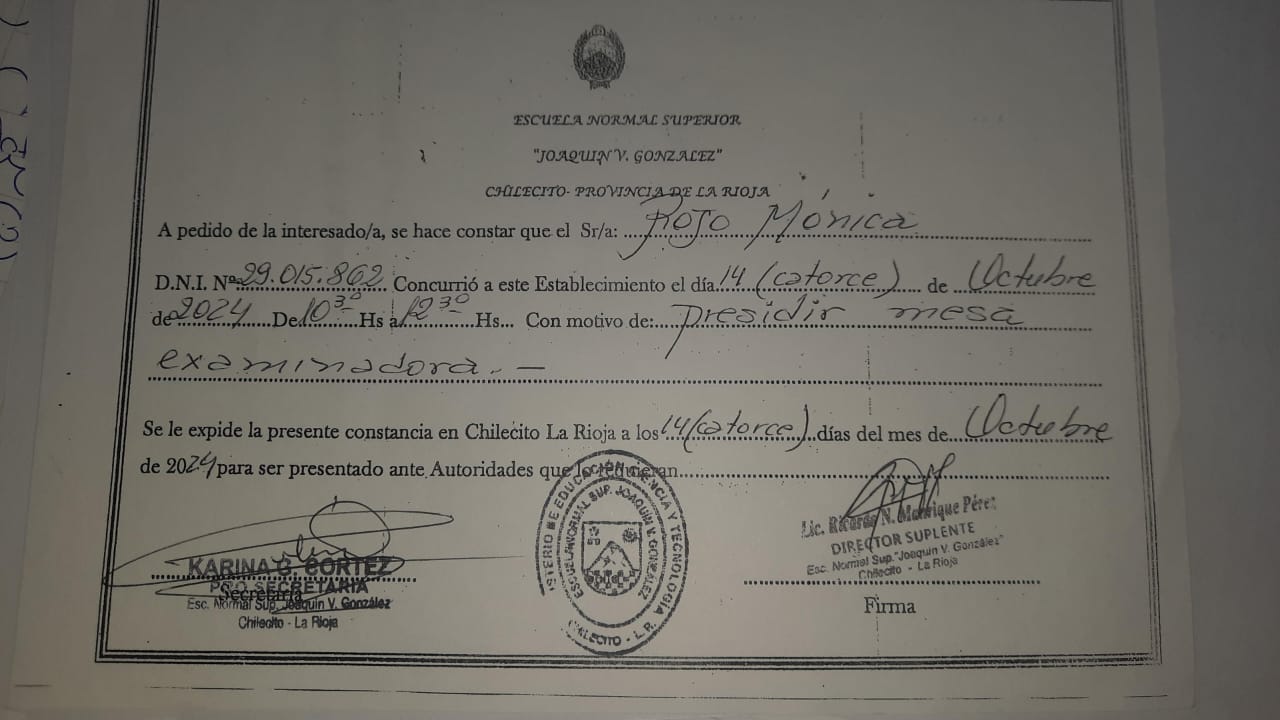 ESCUELA NORMAL SUPERIOR
"JOAQUIN V. GONZALEZ"
CHILECITO- PROVINCIA DE LA RIOJA
A pedido de la interesado/a, se hace constar que el Sr/a: Rojo Mónica
D.N.I. Nº 29.015.862. Concurrió a este Establecimiento el día 14 (catorce) de Octubre
de 2024 De 10³⁰ Hs a 12³⁰ Hs... Con motivo de: presidir mesa
examinadora. —
Se le expide la presente constancia en Chilecito La Rioja a los 14 (catorce) días del mes de Octubre
de 2024 para ser presentado ante Autoridades que lo requieran
KARINA G. CORTEZ
PRO SECRETARIA
Secretaria
Esc. Normal Sup. Joaquin V. González
Chilecito - La Rioja
MINISTERIO DE EDUCACIÓN CIENCIA Y TECNOLOGÍA
ESCUELA NORMAL SUP. JOAQUIN V. GONZALEZ
CHILECITO - L.R.
Lic. Ricardo N. Manrique Pérez
DIRECTOR SUPLENTE
Esc. Normal Sup. "Joaquin V. González"
Chilecito - La Rioja
Firma